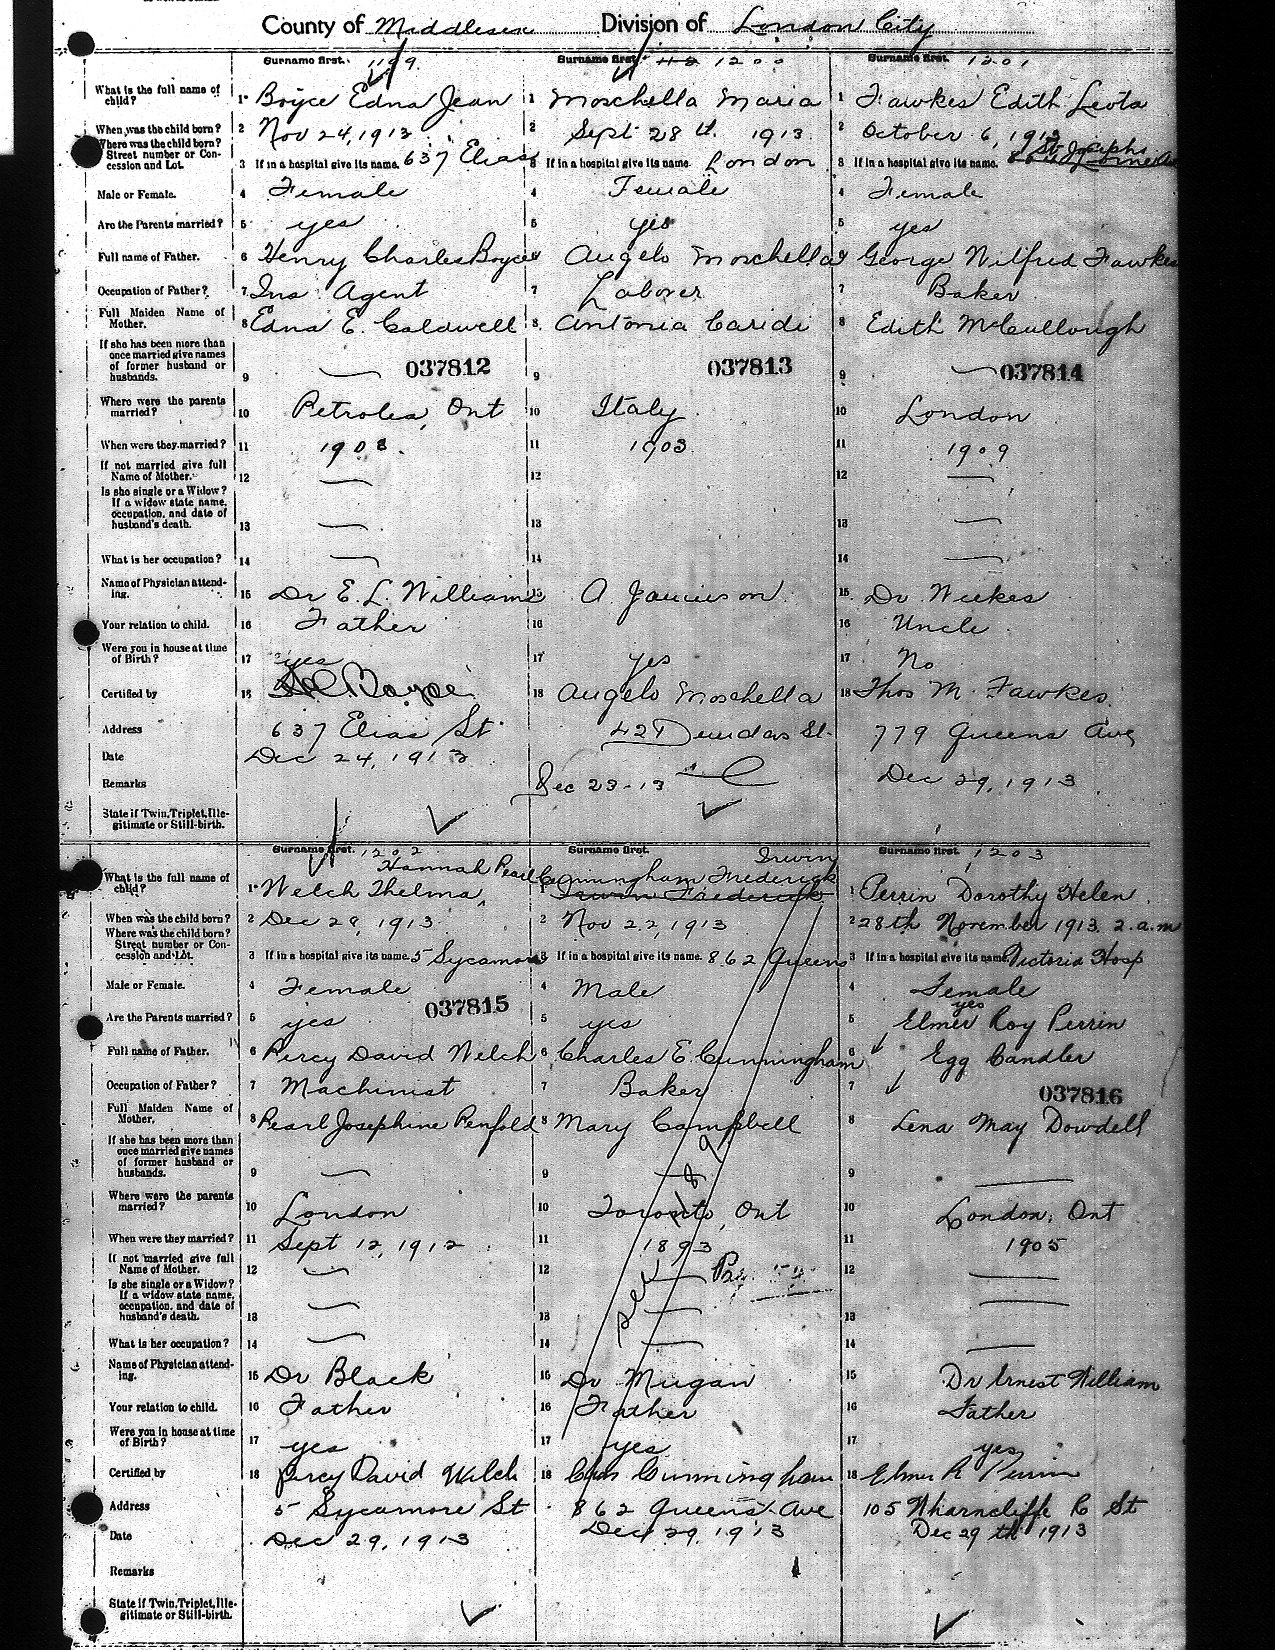 County of Middlesex Division of London City
Surname first. 1199
Surname first. 1200
Surname first. 1201
What is the full name of child?
1 Boyce Edna Jean
1 Moschella Maria
1 Fawkes Edith Leota
When was the child born?
2 Nov 24, 1913
2 Sept 28th 1913
2 October 6, 1913
Where was the child born? Street number or Concession and Lot.
3 If in a hospital give its name. 637 Elias
3 If in a hospital give its name. London
3 If in a hospital give its name. St Josephs
Male or Female.
4 Female
4 Female
4 Female
Are the Parents married?
5 yes
5 yes
5 yes
Full name of Father.
6 Henry Charles Boyce
Angelo Moschella
George Wilfred Fawkes
Occupation of Father?
7 Ins Agent
7 Laborer
7 Baker
Full Maiden Name of Mother.
8 Edna E. Caldwell
8 Antonia Caridi
8 Edith McCullough
If she has been more than once married give names of former husband or husbands.
9 — 037812
9 037813
9 — 037814
Where were the parents married?
10 Petrolea, Ont
10 Italy
10 London
When were they married?
11 1908.
11 1903
11 1909
If not married give full Name of Mother.
12 —
12
12 —
Is she single or a Widow? If a widow state name, occupation, and date of husband's death.
13 —
13
13 —
What is her occupation?
14 —
14
14 —
Name of Physician attending.
15 Dr E. L. Williams
15 A.
15 Dr Weekes
Your relation to child.
16 Father
16
16 Uncle
Were you in house at time of Birth?
17 yes
17 yes
17 No
Certified by
18 Boyce
18 Angelo Moschella
18 Thos M. Fawkes
Address
637 Elias St
427 Dundas St.
779 Queens Ave
Date
Dec 24, 1913
Dec 23-13
Dec 29, 1913
Remarks
State if Twin, Triplet, Illegitimate or Still-birth.
Surname first. 1202
Surname first.
Surname first. 1203
What is the full name of child?
Hannah Pearl
1 Welch Thelma
Irwin
Cunningham Frederick
Irwin Frederick
1 Perrin Dorothy Helen
When was the child born?
2 Dec 28, 1913
2 Nov 22, 1913
2 28th November 1913 2. a.m
Where was the child born? Street number or Concession and Lot.
3 If in a hospital give its name. 5 Sycamore
3 If in a hospital give its name. 862 Queens
3 If in a hospital give its name Victoria Hosp
Male or Female.
4 Female
4 Male
4 Female
037815
Are the Parents married?
5 yes
5 yes
yes
5 Elmer Roy Perrin
Full name of Father.
6 Percy David Welch
6 Charles E Cunningham
6 Egg Candler
Occupation of Father?
7 Machinist
7 Baker
7
037816
Full Maiden Name of Mother.
8 Pearl Josephine Penfold
8 Mary Campbell
8 Lena May Dowdell
If she has been more than once married give names of former husband or husbands.
9 —
9 —
9 —
Where were the parents married?
10 London
10 Toronto, Ont
10 London, Ont
When were they married?
11 Sept 12, 1912
11 1893
11 1905
If not married give full Name of Mother.
12 —
12 —
12 —
Is she single or a Widow? If a widow state name, occupation, and date of husband's death.
13 —
13 —
13 —
What is her occupation?
14 —
14 —
14 —
Name of Physician attending.
15 Dr Black
15 Dr Mugan
15 Dr Ernest William
Your relation to child.
16 Father
16 Father
16 Father
Were you in house at time of Birth?
17 yes
17 yes
17 yes
Certified by
18 Percy David Welch
18 Chas Cunningham
18 Elmer R Perrin
Address
5 Sycamore St
862 Queens Ave
105 Wharncliffe R St
Date
Dec 29, 1913
Dec 29, 1913
Dec 29th 1913
Remarks
State if Twin, Triplet, Illegitimate or Still-birth.